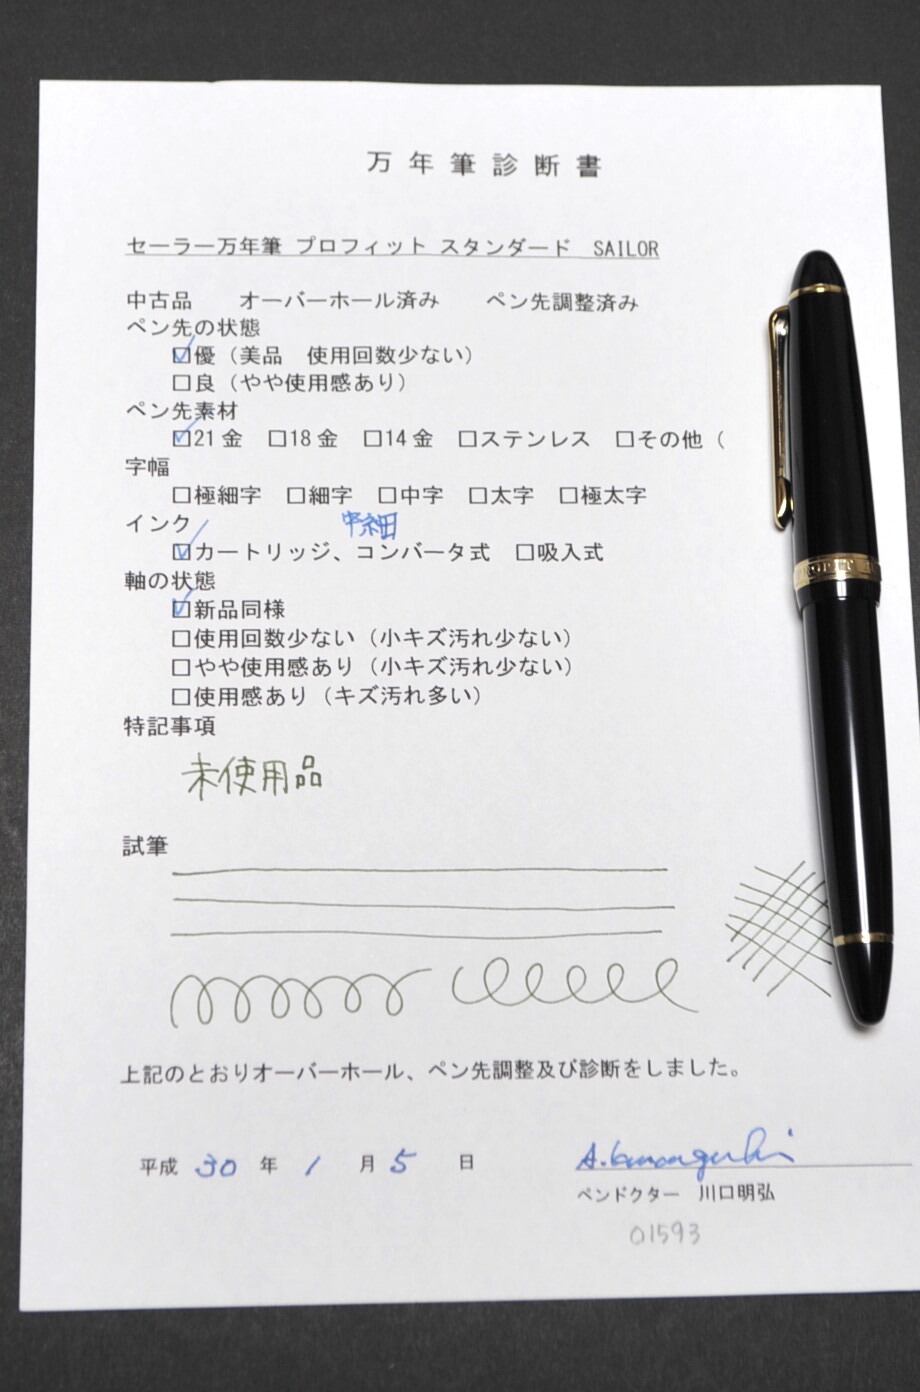 万年筆診断書
セーラー万年筆 プロフィット スタンダード SAILOR
中古品 オーバーホール済み ペン先調整済み
ペン先の状態
☑優（美品 使用回数少ない）
□良（やや使用感あり）
ペン先素材
☑21金 □18金 □14金 □ステンレス □その他（
字幅
□極細字 □細字 □中字 □太字 □極太字
中細
インク
☑カートリッジ、コンバータ式 □吸入式
軸の状態
☑新品同様
□使用回数少ない（小キズ汚れ少ない）
□やや使用感あり（小キズ汚れ少ない）
□使用感あり（キズ汚れ多い）
特記事項
未使用品
試筆
上記のとおりオーバーホール、ペン先調整及び診断をしました。
平成 30 年 1 月 5 日
A.Kawaguchi
ペンドクター 川口明弘
01593